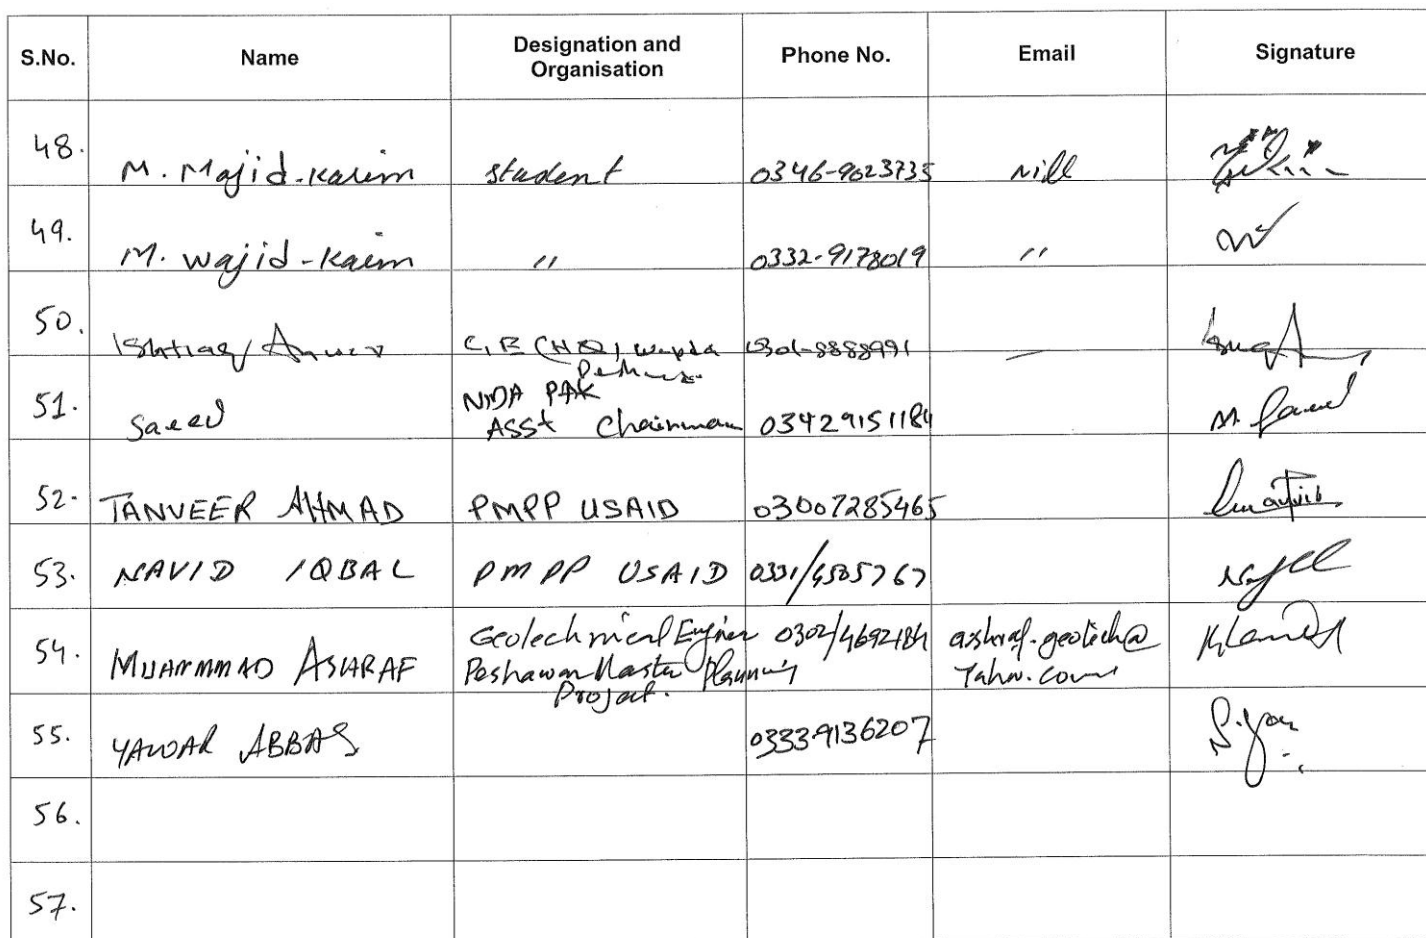 S.No. Name Designation and Organisation Phone No. Email Signature
48. M. Majid-Karim student 0346-9023735 Nill
49. M. Wajid-Karim " 0332-9178019 "
50. Ishtiaq Anwer C,E (HQ), Wapda 0301-8888991 —
51. Saeed NIDA PAK
Asst Chairman 03429151184 M. Saeed
52. TANVEER AHMAD PMPP USAID 03007285465
53. NAVID IQBAL PMPP USAID 0331/4505767
54. MUAMMMAD ASHRAF Geotechnical Enginer 0302/4692184 ashraf.geotech@
Peshawar Master Planning Yahoo.com
Project.
55. YAWAR ABBAS 03339136207
56.
57.